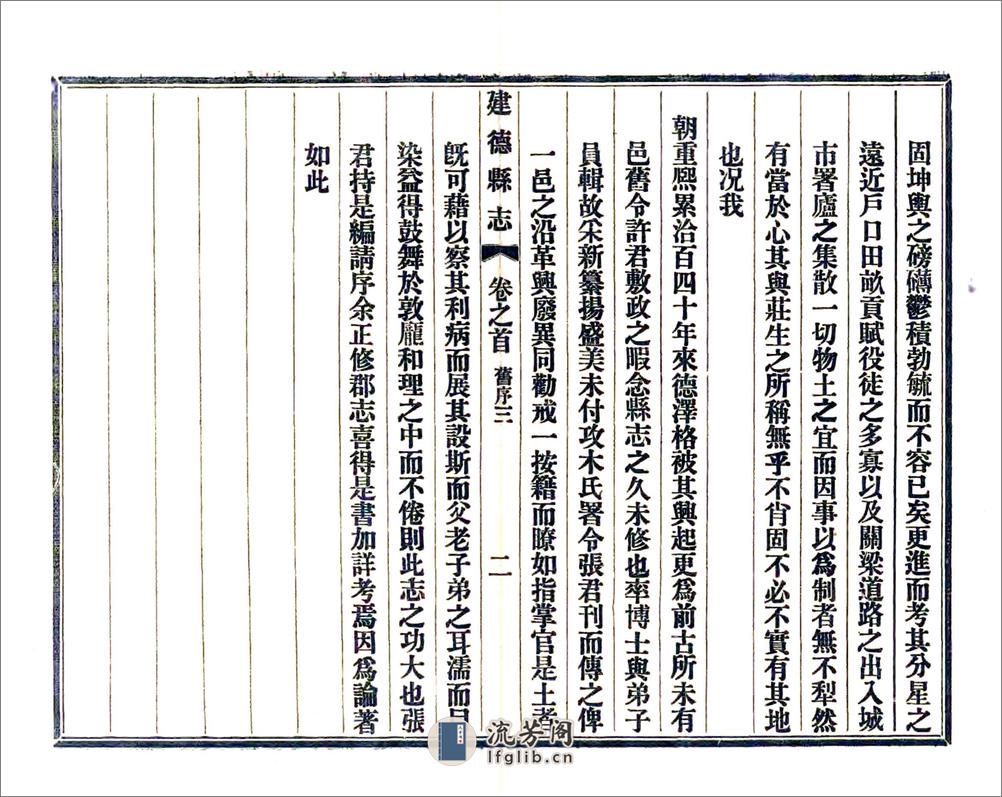 固坤輿之磅礴鬱積勃毓而不容已矣更進而考其分星之
遠近戶口田畝貢賦役徒之多寡以及關梁道路之出入城
市署廬之集散一切物土之宜而因事以爲制者無不犁然
有當於心其與莊生之所稱無乎不肖固不必不實有其地
也況我
朝重熙累洽百四十年來德澤格被其興起更爲前古所未有
邑舊令許君敷政之暇念縣志之久未修也率博士與弟子
員輯故采新纂揚盛美未付攻木氏署令張君刊而傳之俾
一邑之沿革興廢異同勸戒一按籍而瞭如指掌官是土者
建德縣志 卷之首 舊序三 二
既可藉以察其利病而展其設斯而父老子弟之耳濡而目
染益得鼓舞於敦龐和理之中而不倦則此志之功大也張
君持是編請序余正修郡志喜得是書加詳考焉因爲論著
如此
流芳阁
lfglib.cn